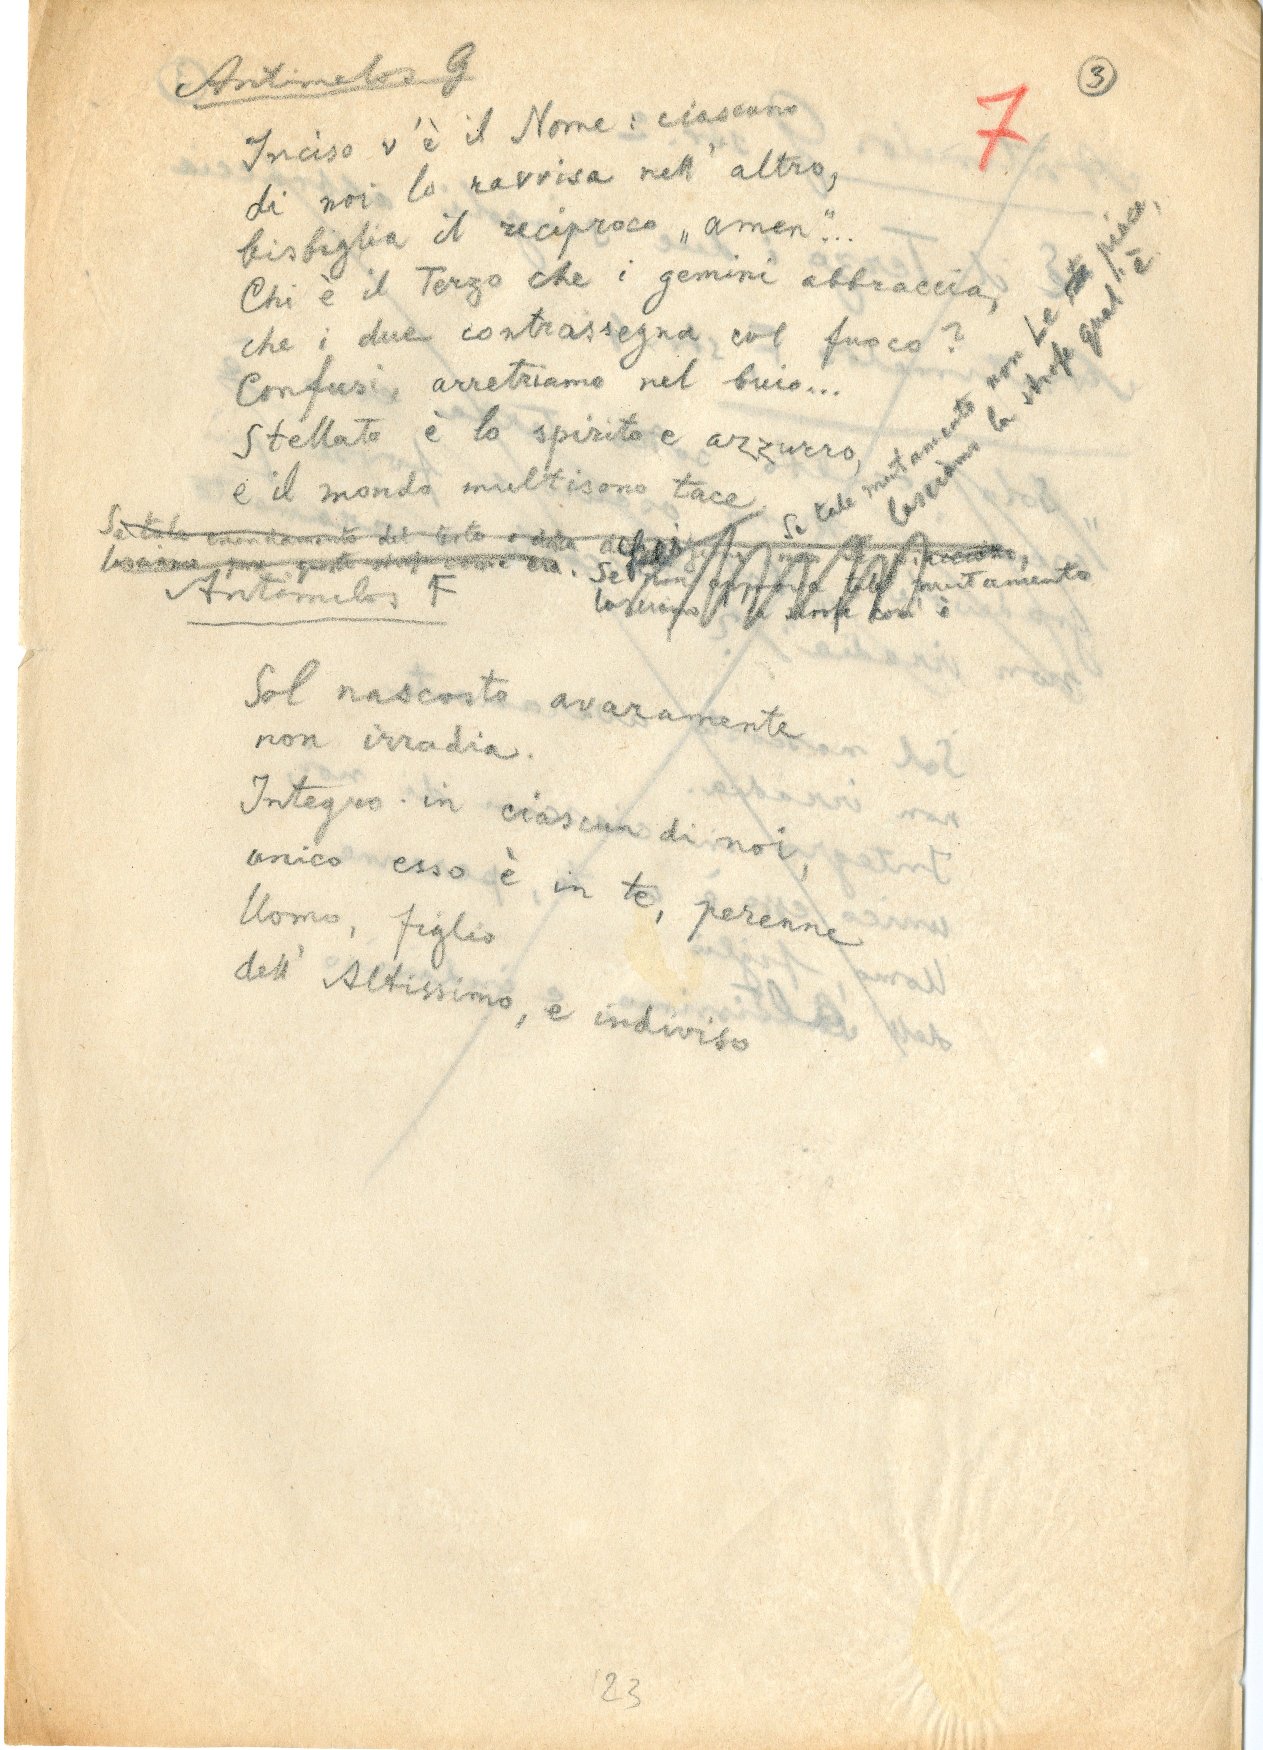 3
7
Antimelos G
Inciso v'è il Nome: ciascuno
di noi lo ravvisa nell'altro,
bisbiglia il reciproco „amen"...
Chi è il Terzo che i gemini abbraccia,
che i due contrassegna col fuoco?
Confusi, arretriamo nel buio...
Stellato è lo spirito e azzurro,
e il mondo multisono tace
Se tale mutamento non Le piace,
lasciamo la strofe qual è.
Se tale emendamento del testo
lasciamo pure questa strofe come era. Se non tale mutamento
lasciamo la strofe com'è
Antimelos F
Sol nascosto avaramente
non irradia.
Integro in ciascun di noi,
unico esso è in te, perenne
Uomo, figlio
dell'Altissimo, e indiviso
23